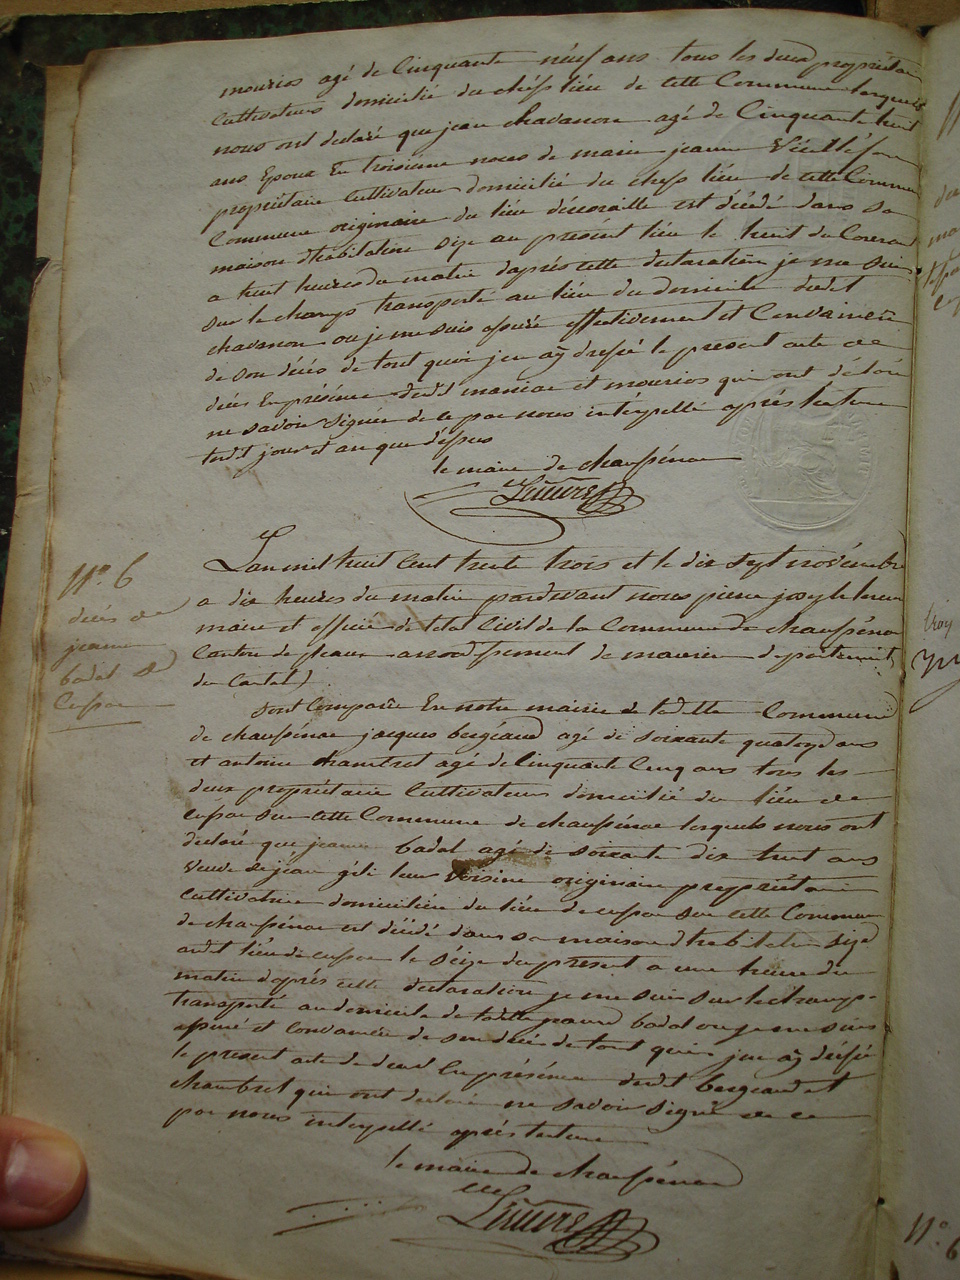 mourios agé de Cinquante néuf ans tous les deux propriétaire
Cultivateurs domicilié du chéf lieu de cette Commune lesquels
nous ont declaré que jean chavanon agé de Cinquante huit
ans Epoux En troisiéme noces de marie jeanne
propriétaire Cultivateur domicilié du chef lieu de cette Commune
Commune originaire du lieu d'escoraille est décédé dans sa
maison d'habitation size au présent lieu le huit du Courant
a huit heures du matin daprés cette declaration je me suis
sur le champs transporté au lieu du domicile dudit
chavanon ou je me suis assuré effectivement et Convaincu
de son décés de tout quoi jen aÿ dressé le present acte de
décés En présence dudit maniac et mourios qui ont déclaré
ne savoir signér de ce par nous intérpellé aprés lecture
ledit jour et an que déssus
le maire de chaussénac
N° 6
décés de
jeanne
badal de
Cussac
L'an mil huit Cent trente trois et le dix sept novémbre
a dix heures du matin pardevant nous pierre joseph
maire et officier de letat Civil de la Commune de chaussénac
Canton de pleaux arrondissement de mauriac departement
du Cantal)
Sont Comparûs En notre mairie de ladite Commune
de chaussénac jacques bergeaud agé de soixante quatorze ans
et antoine chambret agé de Cinquante Cinq ans tous les
deux propriétaire Cultivateurs domicilié du lieu de
cussac sur cette Commune de chaussénac lesquels nous ont
declaré que jeanne badal agé de soixante dix huit ans
veuve de jean géli leur voisine originaire propriétaire
Cultivatrice domiciliée du lieu de cussac sur cette Commune
de chaussénac est décédé dans sa maison d'habitation size
audit lieu de cussac le séize du présent a une heure du
matin daprés cette declaration je me suis sur le champs
transporté au domicile de ladite jeanne badal ou je me suis
assuré et Convaincu de son décés de tout quoi jen aÿ dréssé
le present acte de decés En présence dudit bergeaud et
chambret qui ont declaré ne savoir signér de ce
par nous intérpellé aprés lecture
le maire de chaussénac
N° 6